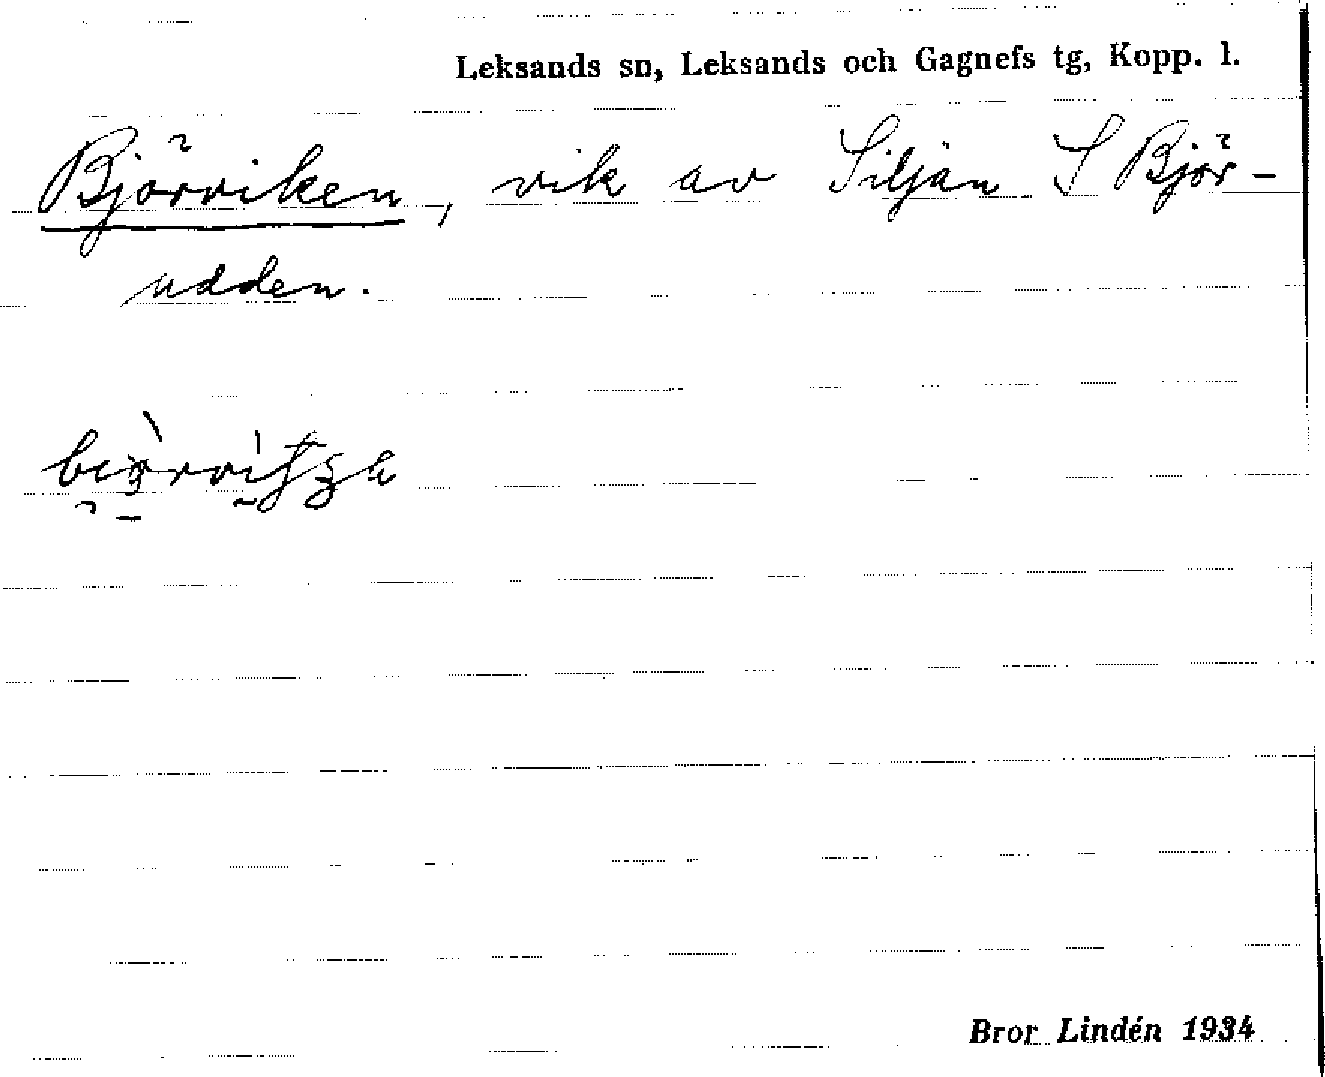 Leksands sn, Leksands och Gagnefs tg, Kopp. l.
Björviken, vik av Siljan S Björ-
udden.
Bror Lindén 1934